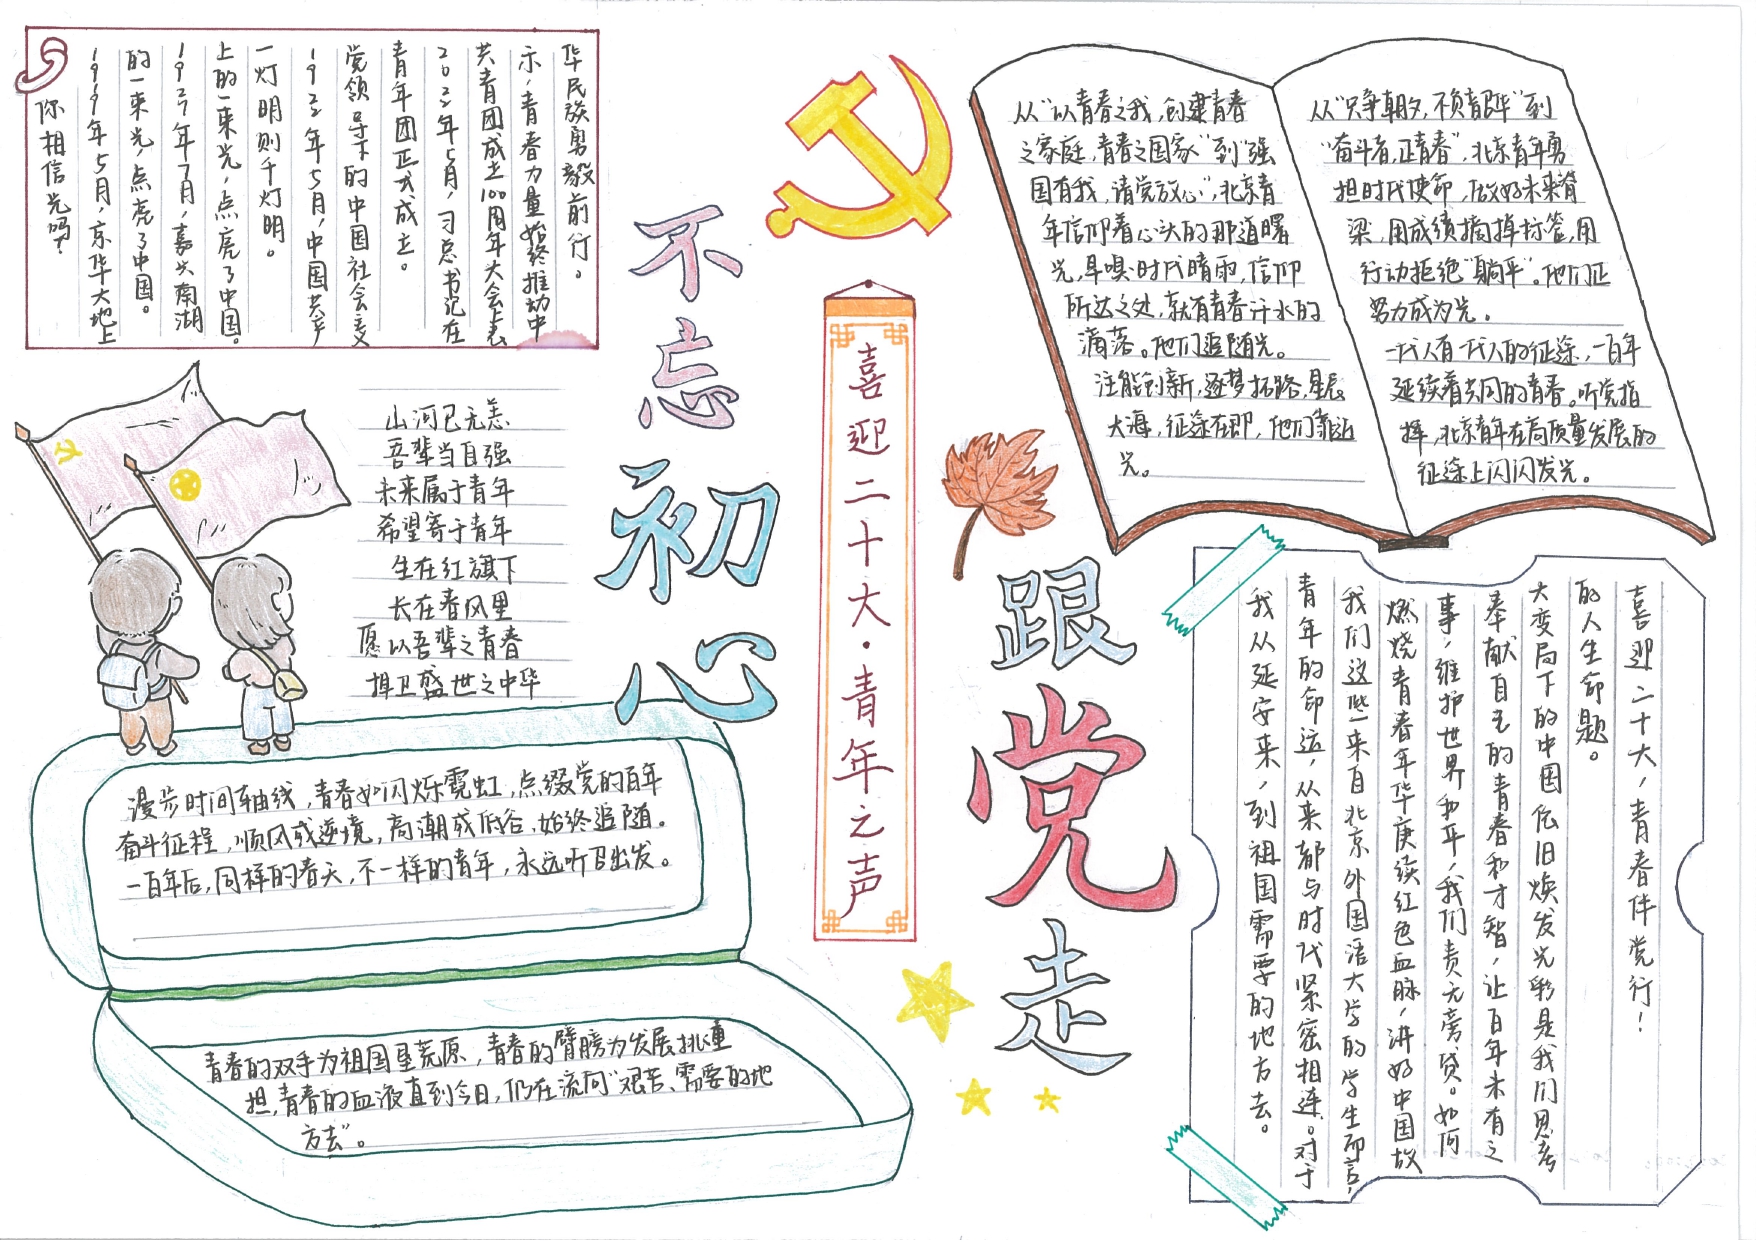 你相信光吗?
1919年5月,京华大地上
的一束光,点亮了中国。
1927年7月,嘉兴南湖
上的一束光,点亮了中国。
一灯明则千灯明。
1922年5月,中国共产
党领导下的中国社会主义
青年团正式成立。
2022年5月,习总书记在
共青团成立100周年大会上表
示,青春力量始终推动中
华民族勇毅前行。
山河已无恙
吾辈当自强
未来属于青年
希望寄于青年
生在红旗下
长在春风里
愿以吾辈之青春
捍卫盛世之中华
漫步时间轴线,青春如闪烁霓虹,点缀党的百年
奋斗征程,顺风或逆境,高潮或低谷,始终追随。
一百年后,同样的春天,不一样的青年,永远听召出发。
青春的双手为祖国垦荒原,青春的臂膀为发展挑重
担,青春的血液直到今日,仍在流向“艰苦、需要的地
方去”。
不忘初心
喜迎二十大·青年之声
跟党走
从“以青春之我,创建青春
之家庭,青春之国家”到“强
国有我,请党放心”,北京青
年信仰着心头的那道曙
光,早嗅时代晴雨,信仰
所达之处,就有青春汗水的
滴落。他们追随光。
注能创新,逐梦拓路,星辰
大海,征途在即,他们靠近
光。
从“只争朝夕,不负韶华”到
“奋斗者,正青春”,北京青年勇
担时代使命,做好未来脊
梁,用成绩摘掉标签,用
行动拒绝“躺平”。他们正
努力成为光。
一代人有一代人的征途,一百年
延续着共同的青春。听党指
挥,北京青年在高质量发展的
征途上闪闪发光。
我从延安来,到祖国需要的地方去。
青年的命运,从来都与时代紧密相连。对于
我们这些来自北京外国语大学的学生而言,
燃烧青春年华赓续红色血脉,讲好中国故
事,维护世界和平,我们责无旁贷。如何
奉献自己的青春和才智,让百年未有之
大变局下的中国依旧焕发光彩是我们思考
的人生命题。
喜迎二十大,青春伴党行!